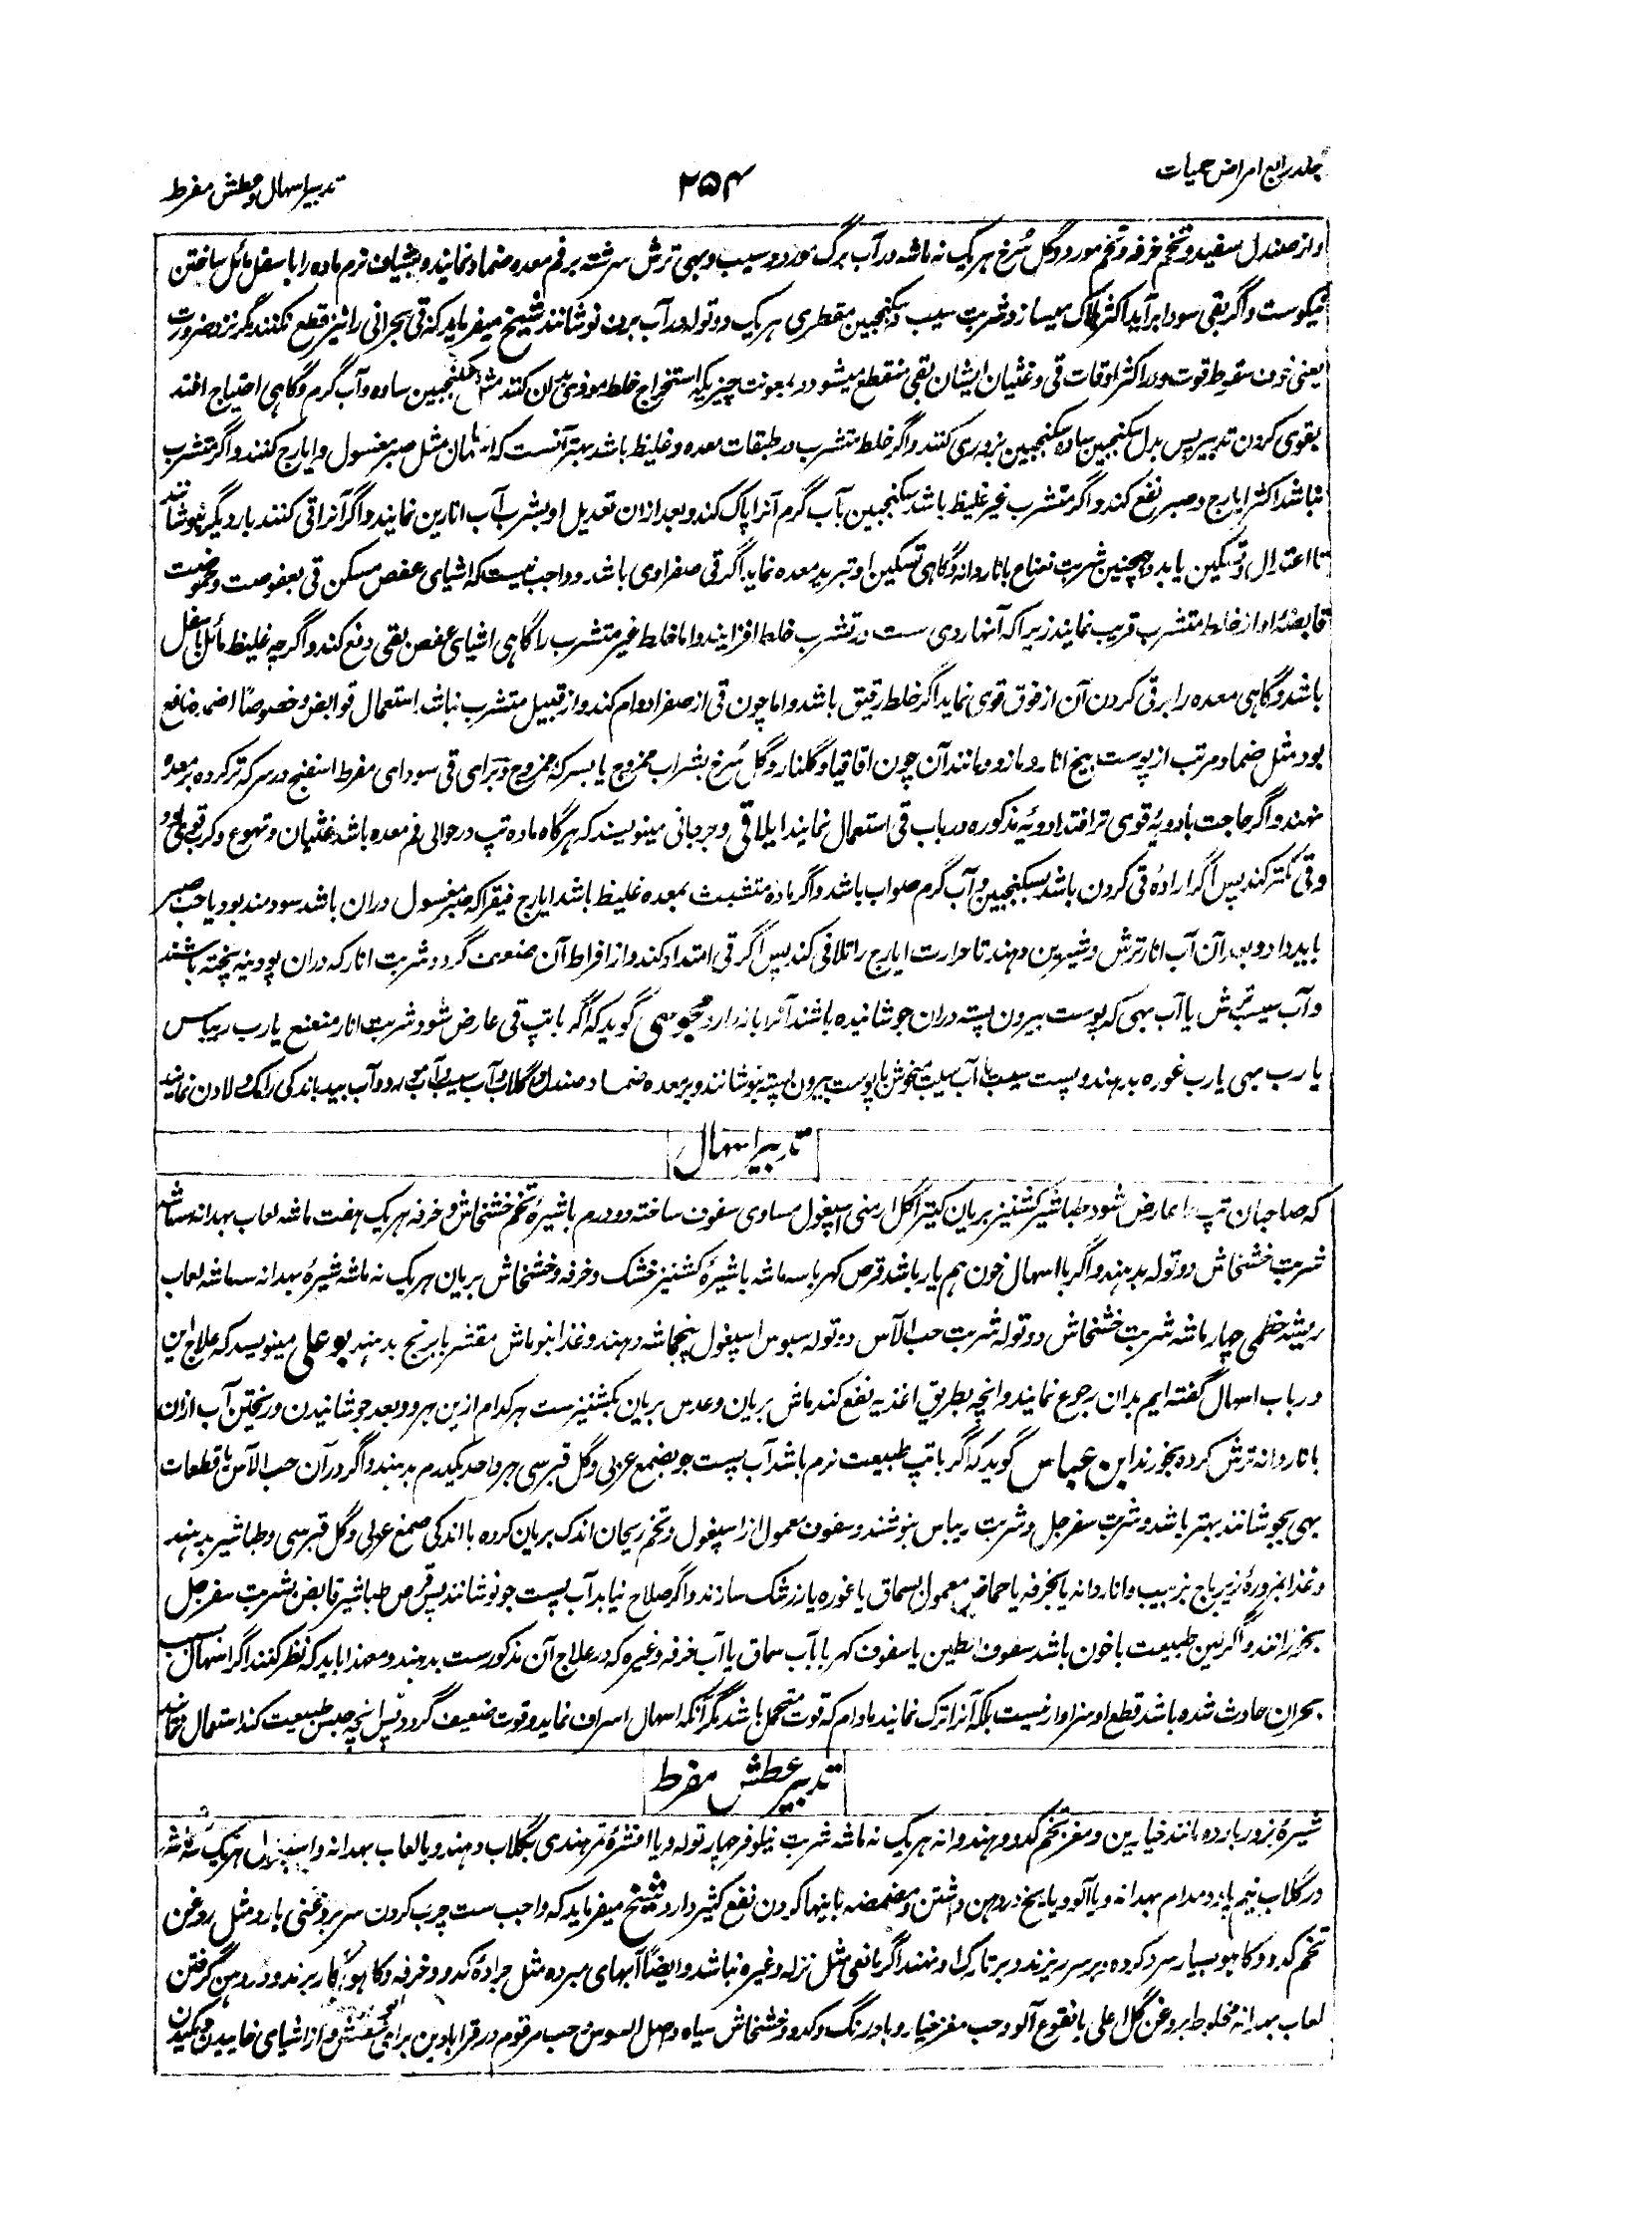 جلد رابع امراض حمیات
۲۵۴
تدبیر اسهال و عطش مفرط
و از صندل سفید و تخم خرفه و تخم مورد و گل سُرخ هر یک نه ماشه در آب برگ مورد و سیب و بهی ترش سرشته بر فم معده ضماد نمایند و بشیاف نرم ماده را باسفل مائل ساختن
نیکوست و اگر بقی سودا برآید اکثر هلاک میسازد شربت سیب و سکنجبین مقطری هر یک دو توله در آب برف نوشانند شیخ میفرماید که قی بحرانی را نیز قطع نکنند مگر نزد ضرورت
یعنی خوف سقوط قوت و در اکثر اوقات قی و غثیان ایشان بقی منقطع میشود و بمعونت چیزیکه استخراج خلط موذی بدان کنند مثل سکنجبین ساده و آب گرم و گاهی احتیاج افتد
بقوی کردن تدبیر پس بدل سکنجبین ساده سکنجبین بزوری کنند و اگر خلط متشرب در طبقات معده و غلیظ باشد بهتر آنست که مثل صبر مغسول و ایارج کنند و اگر متشرب
نباشد اکثر ایارج و صبر نفع کند و اگر متشرب غیر غلیظ باشد سکنجبین بآب گرم آنرا پاک کند و بعد ازان تعدیل او بشرب آب انارین نمایند و اگر آنرا قی کنند بار دیگر بنوشانند
تا اعتدال و تسکین یابد و همچنین شربت نعناع با ناردانه و گاهی تسکین او تبرید معده نماید اگر قی صفراوی باشد و واجب نیست که اشیای عفص مسکن قی بعفوصت و حموضت
قابضهٔ او از خلط متشرب قریب نمایند زیرا که آنها ردی ست و تشرب خلط افزایند و اما خلط غیر متشرب را گاهی اشیای عفص بقی دفع کند و اگرچه غلیظ مائل باسفل
باشد و گاهی معده را بر قی کردن آن از فوق قوی نماید اگر خلط رقیق باشد و اما چون قی از صفرا دوام کند و از قبیل متشرب نباشد استعمال قوابض و خصوصاً اضمده نافع
بود مثل ضماد مرتب از پوست بیخ انار و مازو و مانند آن چون اقاقیا و گلنار و گل سُرخ بشراب ممزوج یا بسرکه ممزوج و برای قی سودای مفرط اسفنج در سرکه تر کرده بر معده
نهند و اگر حاجت بادویهٔ قوی تر افتد ادویهٔ مذکوره در باب قی استعمال نمایند ایلاقی و جرجانی مینویسند که هرگاه ماده تپ در حوالی فم معده باشد غثیان و تهوع و کرب
و قی بکثر کند پس اگر ارادهٔ قی کردن باشد بسکنجبین و آب گرم صواب باشد و اگر ماده متشبث بمعده غلیظ باشد ایارج فیقرا که صبر مغسول دران باشد سودمند بود یا حب صبر
باید داد و بعد آن آب انار ترش و شیرین دهند تا حرارت ایارج را تلافی کند پس اگر قی امتداد کند و از افراط آن ضعف گردد شربت انار که دران پودینه پخته باشند
و آب سیب ترش یا آب بهی که پوست بیرون پسته دران جوشانیده باشند آنرا بازدارد مجوسی گوید که اگر با تپ قی عارض شود شربت انار منعنع یا رب ریباس
یا رب بهی یا رب غوره بدهند و پست سیب با آب سیب میخوش با پوست بیرون پسته بنوشانند و بر معده ضماد صندل و گلاب و آب سیب و آب مورد و آب بید با اندکی رامک و لادن نمایند
تدبیر اسهال
که صاحبان تپ را عارض شود طباشیر کشنیز بریان کتیرا گل ارمنی اسپغول مساوی سفوف ساخته دو درم با شیرهٔ تخم خشخاش و خرفه هر یک هفت ماشه لعاب بهدانه سه ماشه
شربت خشخاش دو توله بدهند و اگر با اسهال خون هم یار باشد قرص کهربا سه ماشه با شیرهٔ کشنیز خشک و خرفه و خشخاش بریان هر یک نه ماشه شیرهٔ بهدانه سه ماشه لعاب
ریشه خطمی چهار ماشه شربت خشخاش دو توله شربت حب الآس دو توله سبوس اسپغول پنجماشه دهند و غذا بنوماش مقشر با برنج بدهند بو علی مینویسد که علاج این
در باب اسهال گفته ایم بدان رجوع نمایند و انچه بطریق اغذیه نفع کند ماش بریان و عدس بریان بکشنیز ست هر کدام ازین هر دو بعد جوشانیدن و ریختن آب ازان
با ناردانه ترش کرده بخورند ابن عباس گوید که اگر با تپ طبیعت نرم باشد آب پست جو بصمغ عربی و گل قبرسی هر واحد یکدرم بدهند و اگر در آن حب الآس یا قطعات
بهی بجوشانند بهتر باشد و شربت سفرجل و شربت ریباس بنوشند و سفوف معمول از اسپغول و تخم ریحان اندک بریان کرده با اندکی صمغ عربی و گل قبرسی و طباشیر بدهند
و غذا مزورهٔ زیرباج بزبیب و ناردانه یا بخرفه یا حماض معمول بسماق یا غوره یا زرشک سازند و اگر صلاح نیابد آب پست جو نوشانند پس قرص طباشیر قابض بشربت سفرجل
بخورانند و اگر لین طبیعت با خون باشد سفوف الطین یا سفوف کهربا بآب سماق یا آب خرفه و غیره که در علاج آن مذکورست بدهند و معهذا باید که نظر کنند اگر اسهال بسبب
بحران حادث شده باشد قطع او سزاوار نیست بلکه آنرا ترک نمایند مادام که قوت متحمل باشد مگر آنکه اسهال اسراف نماید و قوت ضعیف گردد پس انچه حبس طبیعت کند استعمال نمایند
تدبیر عطش مفرط
شیرهٔ بزور بارده مانند خیارین و مغز تخم کدو و هندوانه هر یک نه ماشه شربت نیلوفر چهار توله و یا افشرهٔ تمر هندی بگلاب دهند و یا لعاب بهدانه و اسپغول هر یک سه ماشه
در گلاب نیم پاؤ و مدام بهدانه و یا آلو و یا یخ در دهن داشتن و مضمضه باینها کردن نفع کثیر دارد شیخ میفرماید که واجب ست چرب کردن سر بروغنی بارد مثل روغن
تخم کدو و کاهو بسیار سرد کرده بر سر ریزند و بر تارک او نهند اگر مانعی مثل نزله و غیره نباشد و ایضاً آبهای مبرده مثل جرادهٔ کدو و خرفه و کاهو بکار برند و در دهن گرفتن
لعاب بهدانه مخلوط بروغن گل اعلی یا نقوع آلو و حب مغز خیار و بادرنگ و کدو و خشخاش سیاه و اصل السوس و حب مرقوم در قرابادین برای عطش و از اشیای خاییدن و مکیدن